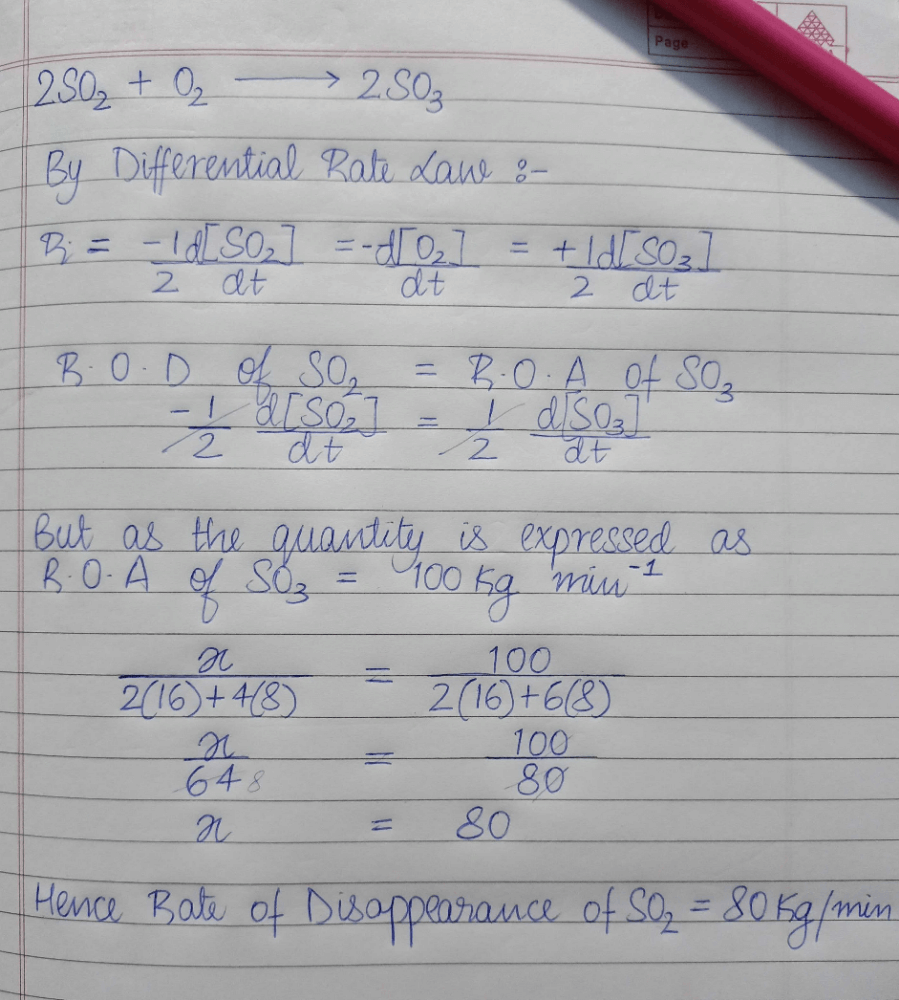 Page
2SO₂ + O₂ ⟶ 2SO₃
By Differential Rate Law :-
Rᵢ = -1/2 d[SO₂]/dt = -d[O₂]/dt = +1/2 d[SO₃]/dt
R.O.D of SO₂ = R.O.A of SO₃
-1/2 d[SO₂]/dt = 1/2 d[SO₃]/dt
But as the quantity is expressed as
R.O.A of SO₃ = 100 Kg min⁻¹
x/(2(16)+4(8)) = 100/(2(16)+6(8))
x/64 8 = 100/80
x = 80
Hence Rate of Disappearance of SO₂ = 80 Kg/min